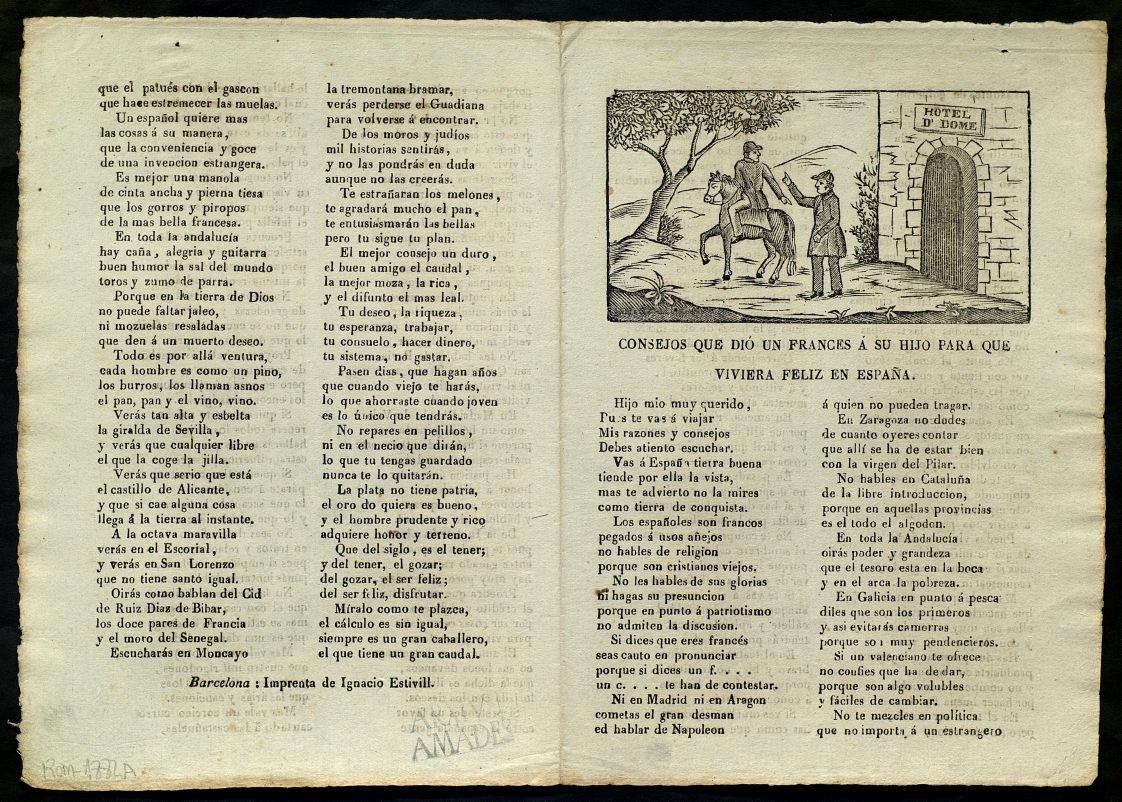 que el patués con el gascon
que hace estremecer las muelas.
Un español quiere mas
las cosas á su manera,
que la conveniencia y goce
de una invencion estrangera.
Es mejor una manola
de cinta ancha y pierna tiesa
que los gorros y piropos
de la mas bella francesa.
En toda la andalucía
hay caña, alegria y guitarra
buen humor la sal del mundo
toros y zumo de parra.
Porque en la tierra de Dios
no puede faltar jaleo,
ni mozuelas resaladas
que den á un muerto deseo.
Todo es por allá ventura,
cada hombre es como un pino,
los burros, los llaman asnos
el pan, pan y el vino, vino.
Verás tan alta y esbelta
la giralda de Sevilla,
y verás que cualquier libre
el que la coge la jilla.
Verás que serio que está
el castillo de Alicante,
y que si cae alguna cosa
llega á la tierra al instante.
A la octava maravilla
verás en el Escorial,
y verás en San Lorenzo
que no tiene santo igual.
Oirás como hablan del Cid
de Ruiz Diaz de Bibar,
los doce pares de Francia
y el moro del Senegal.
Escucharás en Moncayo
la tremontana bramar,
verás perderse el Guadiana
para volverse á encontrar.
De los moros y judíos
mil historias sentirás,
y no las pondrás en duda
aunque no las creerás.
Te estrañaran los melones,
te agradará mucho el pan,
te entusiasmarán las bellas
pero tu sigue tu plan.
El mejor consejo un duro,
el buen amigo el caudal,
la mejor moza, la rica,
y el difunto el mas leal.
Tu deseo, la riqueza,
tu esperanza, trabajar,
tu consuelo, hacer dinero,
tu sistema, no gastar.
Pasen dias, que hagan años
que cuando viejo te harás,
lo que ahorraste cuando joven
es lo único que tendrás.
No repares en pelillos,
ni en el necio que dirán,
lo que tu tengas guardado
nunca te lo quitarán.
La plata no tiene patria,
el oro do quiera es bueno,
y el hombre prudente y rico
adquiere honor y terreno.
Que del siglo, es el tener;
y del tener, el gozar;
del gozar, el ser feliz;
del ser feliz, disfrutar.
Míralo como te plazca,
el cálculo es sin igual,
siempre es un gran caballero,
el que tiene un gran caudal.
Barcelona : Imprenta de Ignacio Estivill.
AMADES
Rom-1882 A
HOTEL
D' DOME
CONSEJOS QUE DIÓ UN FRANCES Á SU HIJO PARA QUE
VIVIERA FELIZ EN ESPAÑA.
Hijo mio muy querido,
Pues te vas á viajar
Mis razones y consejos
Debes atiento escuchar.
Vas á España tierra buena
tiende por ella la vista,
mas te advierto no la mires
como tierra de conquista.
Los españoles son francos
pegados á usos añejos
no hables de religion
porque son cristianos viejos.
No les hables de sus glorias
ni hagas su presuncion
porque en punto á patriotismo
no admiten la discusion.
Si dices que eres francés
seas cauto en pronunciar
porque si dices un f. . . .
un c. . . . te han de contestar.
Ni en Madrid ni en Aragon
cometas el gran desman
ed hablar de Napoleon
á quien no pueden tragar.
En Zaragoza no dudes
de cuanto oyeres contar
que allí se ha de estar bien
con la virgen del Pilar.
No hables en Cataluña
de la libre introduccion,
porque en aquellas provincias
es el todo el algodon.
En toda la Andalucía
oirás poder y grandeza
que el tesoro esta en la boca
y en el arca la pobreza.
En Galicia en punto á pesca
diles que son los primeros
y asi evitarás camorras
porque son muy pendencieros.
Si un valenciano te ofrece
no confies que ha de dar,
porque son algo volubles
y fáciles de cambiar.
No te mezcles en política
que no importa á un estrangero